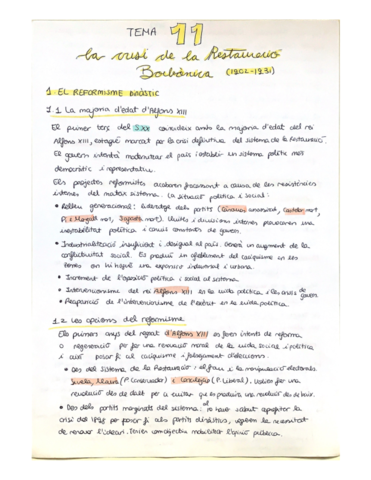 TEMA 11
La crisi de la Restauració
Borbònica (1902-1931)
1 EL REFORMISME DINÀSTIC
1.1 La majoria d'edat d'Alfons XIII
El primer terç del S.XX coincideix amb la majoria d'edat del rei
Alfons XIII, estigué marcat per la crisi definitiva del sistema de la Restauració.
El govern intentà modernitzar el país i establir un sistema polític més
democràtic i representatiu.
Els projectes reformistes acabaren fracassant a causa de les resistències
internes del mateix sistema. La situació política i social:
• Relleu generacional: Lideratge dels partits (Cánovas assassinat, Castelar mort,
Pi i Margall mort, Sagasta mort). Lluites i divisions internes provocaren una
inestabilitat política i canvis constants de govern.
• Industrialització insuficient i desigual al país. Generà un augment de la
conflictivitat social. Es produí un afebliment del caciquisme en les
zones on hi hagué una expansió industrial i urbana.
• Increment de l'oposició política i social al sistema.
• Intervencionisme del rei Alfons XIII en la vida política i les crisis de govern
• Reaparició de l'intervencionisme de l'exèrcit en la vida política.
1.2. Les opcions del reformisme
Els primers anys del regnat d'Alfons XIII es feren intents de reforma
o regeneració per fer una renovació moral de la vida social i política
i així posar fi al caciquisme i falsejament d'eleccions.
• Des del sistema de la Restauració: el frau i la manipulació electorals
Silvela, Maura (P. Conservador) i Canalejas (P. Liberal). Volien fer una
revolució des de dalt per a evitar que es produís una revolució des de baix.
• Des dels partits marginats del sistema: no havien sabut aprofitar la
crisi del 1898 per posar fi als partits dinàstics, vegeren la necessitat
de renovar l'ideari. Tenien com objectiu mobilitzar l'opinió pública.